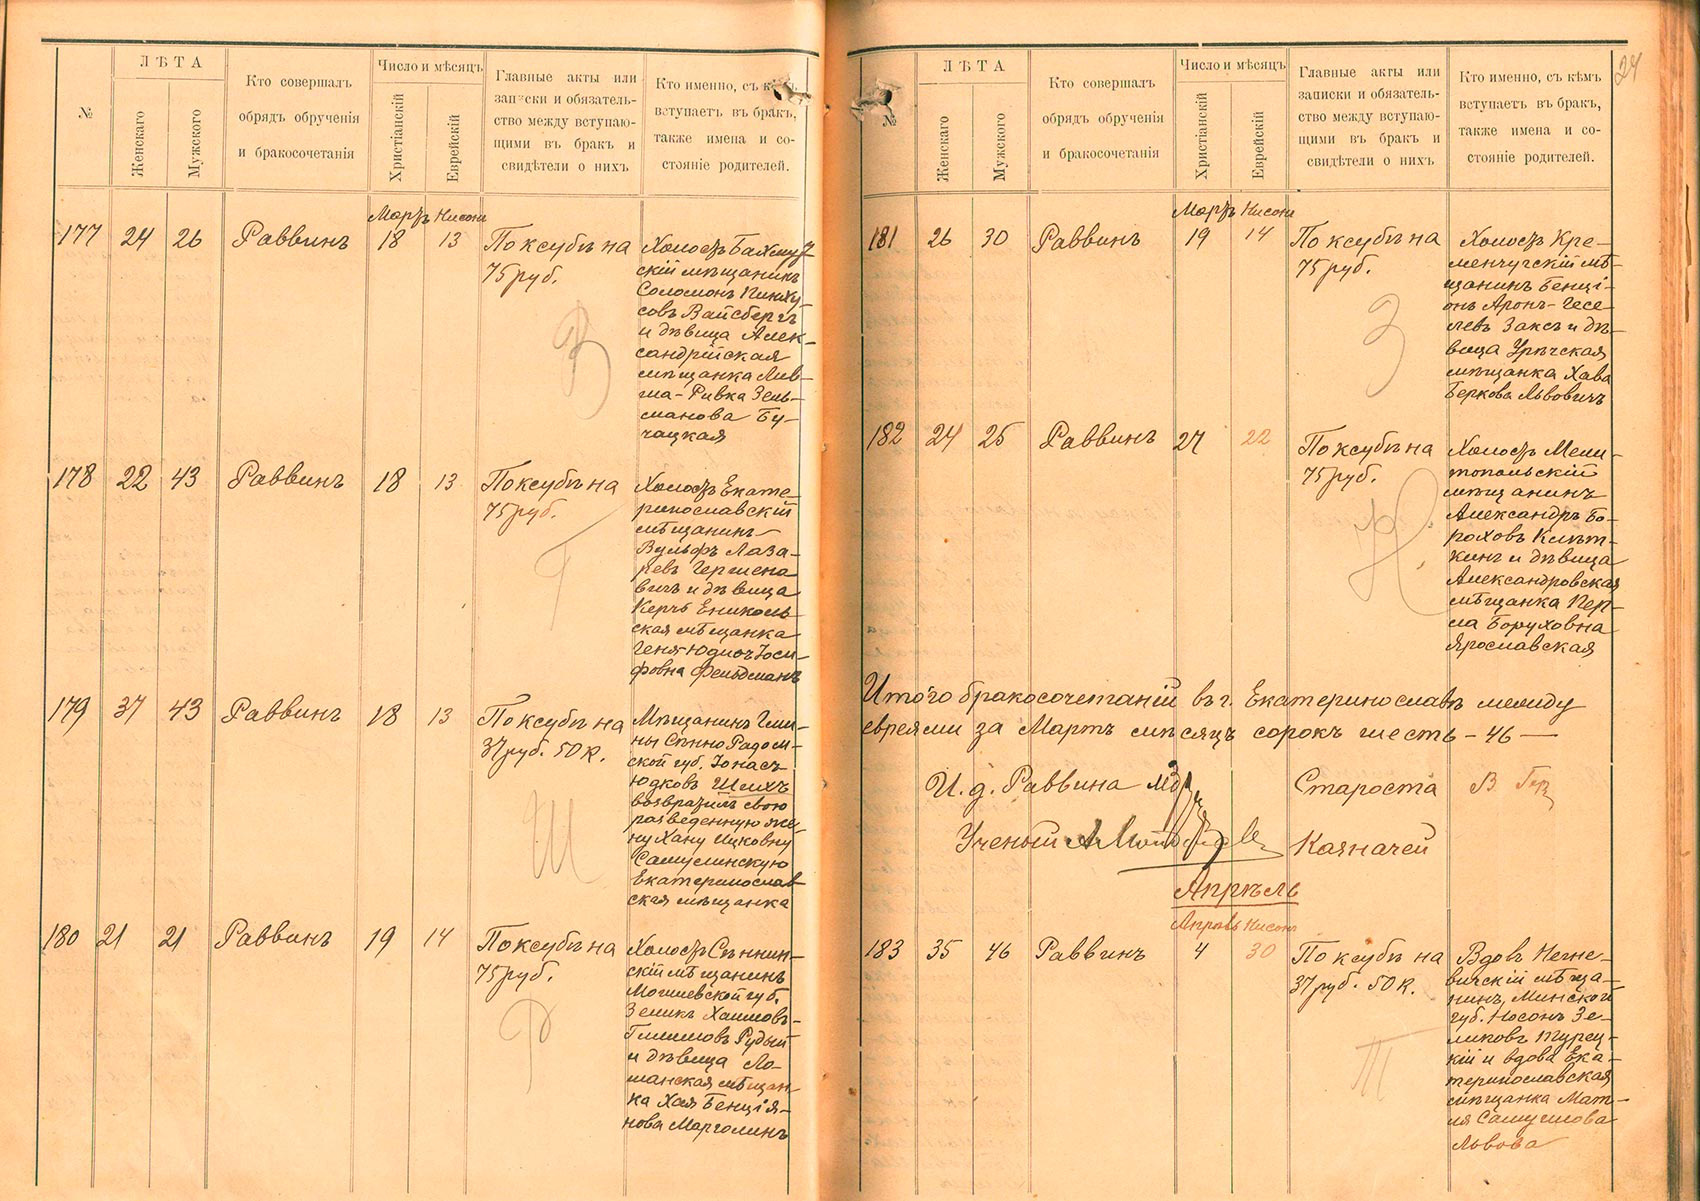 №
ЛѢТА
Женскаго
Мужского
Кто совершалъ
обрядъ обрученія
и бракосочетанія
Число и мѣсяцъ
Христіанскій
Еврейскій
Главные акты или
записки и обязатель-
ство между вступаю-
щими въ бракъ и
свидѣтели о нихъ
Кто именно, съ кѣмъ
вступаетъ въ бракъ,
также имена и со-
стояніе родителей.
Мартъ Нисонъ
177 24 26 Раввинъ 18 13
По ксубѣ на
75 руб.
Холостъ Бахмут-
скій мѣщанинъ
Соломонъ Пинху-
совъ Вайсбергъ
и дѣвица Алек-
сандрійская
мѣщанка Лив-
ша-Ривка Зель-
манова Бу-
чацкая
В
178 22 43 Раввинъ 18 13
По ксубѣ на
75 руб.
Холостъ Екате-
ринославскій
мѣщанинъ
Вульфъ Лаза-
ревъ Гершено-
вичъ и дѣвица
Керчь Ениколь-
ская мѣщанка
Геня-Юдись Іоси-
фовна Фельдманъ
Г
179 37 43 Раввинъ 18 13
По ксубѣ на
37 руб. 50 к.
Мѣщанинъ Гми-
ны Сѣнно Радом-
ской губ. Іонасъ
Юдковъ Шеихъ
возвратилъ свою
разведенную же-
ну Хану Ицковну
Самулинскую
Екатеринослав-
ская мѣщанка
Ш
180 21 21 Раввинъ 19 14
По ксубѣ на
75 руб.
Холостъ Сѣннин-
скій мѣщанинъ
Могилевской губ.
Зеликъ Хаимовъ-
Гилимовъ Рудый
и дѣвица Ло-
шанская мѣщан-
ка Хая Бенція-
нова Марголинъ
Р
24
№
ЛѢТА
Женскаго
Мужского
Кто совершалъ
обрядъ обрученія
и бракосочетанія
Число и мѣсяцъ
Христіанскій
Еврейскій
Главные акты или
записки и обязатель-
ство между вступаю-
щими въ бракъ и
свидѣтели о нихъ
Кто именно, съ кѣмъ
вступаетъ въ бракъ,
также имена и со-
стояніе родителей.
Мартъ Нисонъ
181 26 30 Раввинъ 19 14
По ксубѣ на
75 руб.
Холостъ Кре-
менчугскій мѣ-
щанинъ Бенці-
онъ Аронъ-Гесе-
левъ Заксъ и дѣ-
вица Урѣчская
мѣщанка Хава
Беркова Львовичъ
З
182 24 25 Раввинъ 27 22
По ксубѣ на
75 руб.
Холостъ Мели-
топольскій
мѣщанинъ
Александръ Бо-
роховъ Клѣт-
кинъ и дѣвица
Александровская
мѣщанка Пер-
ла Боруховна
Ярославская
К
Итого бракосочетаній въ г. Екатеринославѣ между
евреями за Мартъ мѣсяцъ сорокъ шесть - 46 -
И. д. Раввина
Староста
Ученый
Казначей
Апрѣль
Апрѣль Нисонъ
183 35 46 Раввинъ 4 30
По ксубѣ на
37 руб. 50 к.
Вдовъ Негне-
вичскій мѣща-
нинъ, Минской
губ. Носонъ Зе-
ликовъ Турец-
кій и вдова Ека-
теринославская
мѣщанка Мат-
ля Самуилова
Львова
Т